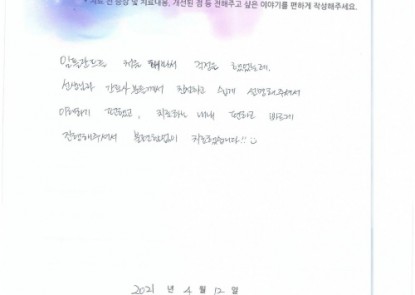 치료 전 증상 및 치료내용, 개선된 점 등 전해주고 싶은 이야기를 편하게 작성해주세요.
임플란트는 처음 해봐서 걱정을 했었는데,
선생님과 간호사분들께서 친절하고 쉽게 설명해주셔서
이해하기 편했고, 치료하는 내내 편하고 빠르게
진행해주셔서 불편함없이 치료했습니다!!
2021 년 4 월 12 일